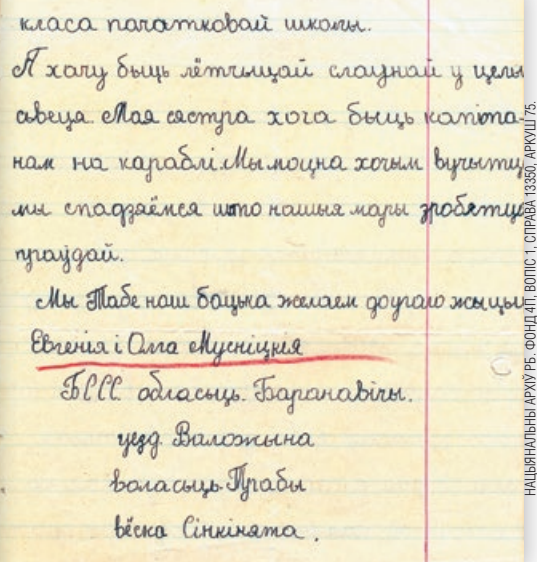 класа пачатковай школы.
Я хачу быць лётчыцай слаўнай у целы
сьвеце. Мая сястра хоча быць капіта-
нам на караблі. Мы моцна хочым вучытца
мы спадзяёмся што нашыя мары зробятца
праўдай.
Мы Табе наш бацька желаем доўгаго жыцьця
Евгенія і Олга Мусніцкія
БССС. обласьць. Баранавічы.
уезд. Валожына
воласьць. Прабы
вёска Сінкінята.
НАЦЫЯНАЛЬНЫ АРХІЎ РБ. ФОНД 4П, ВОПІС 1, СПРАВА 13350, АРКУШ 75.